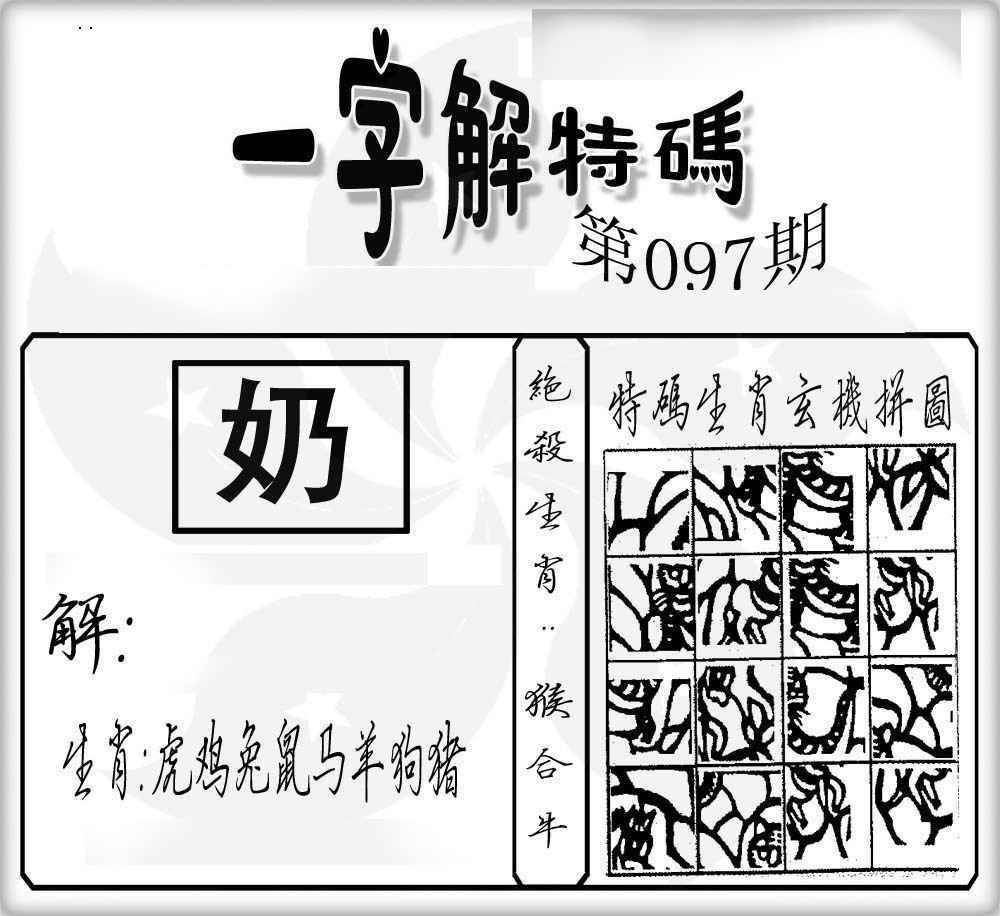 一字解特碼
第097期
奶
解:
生肖:虎鸡兔鼠马羊狗猪
絶殺生肖:猴合牛
特碼生肖玄機拼圖